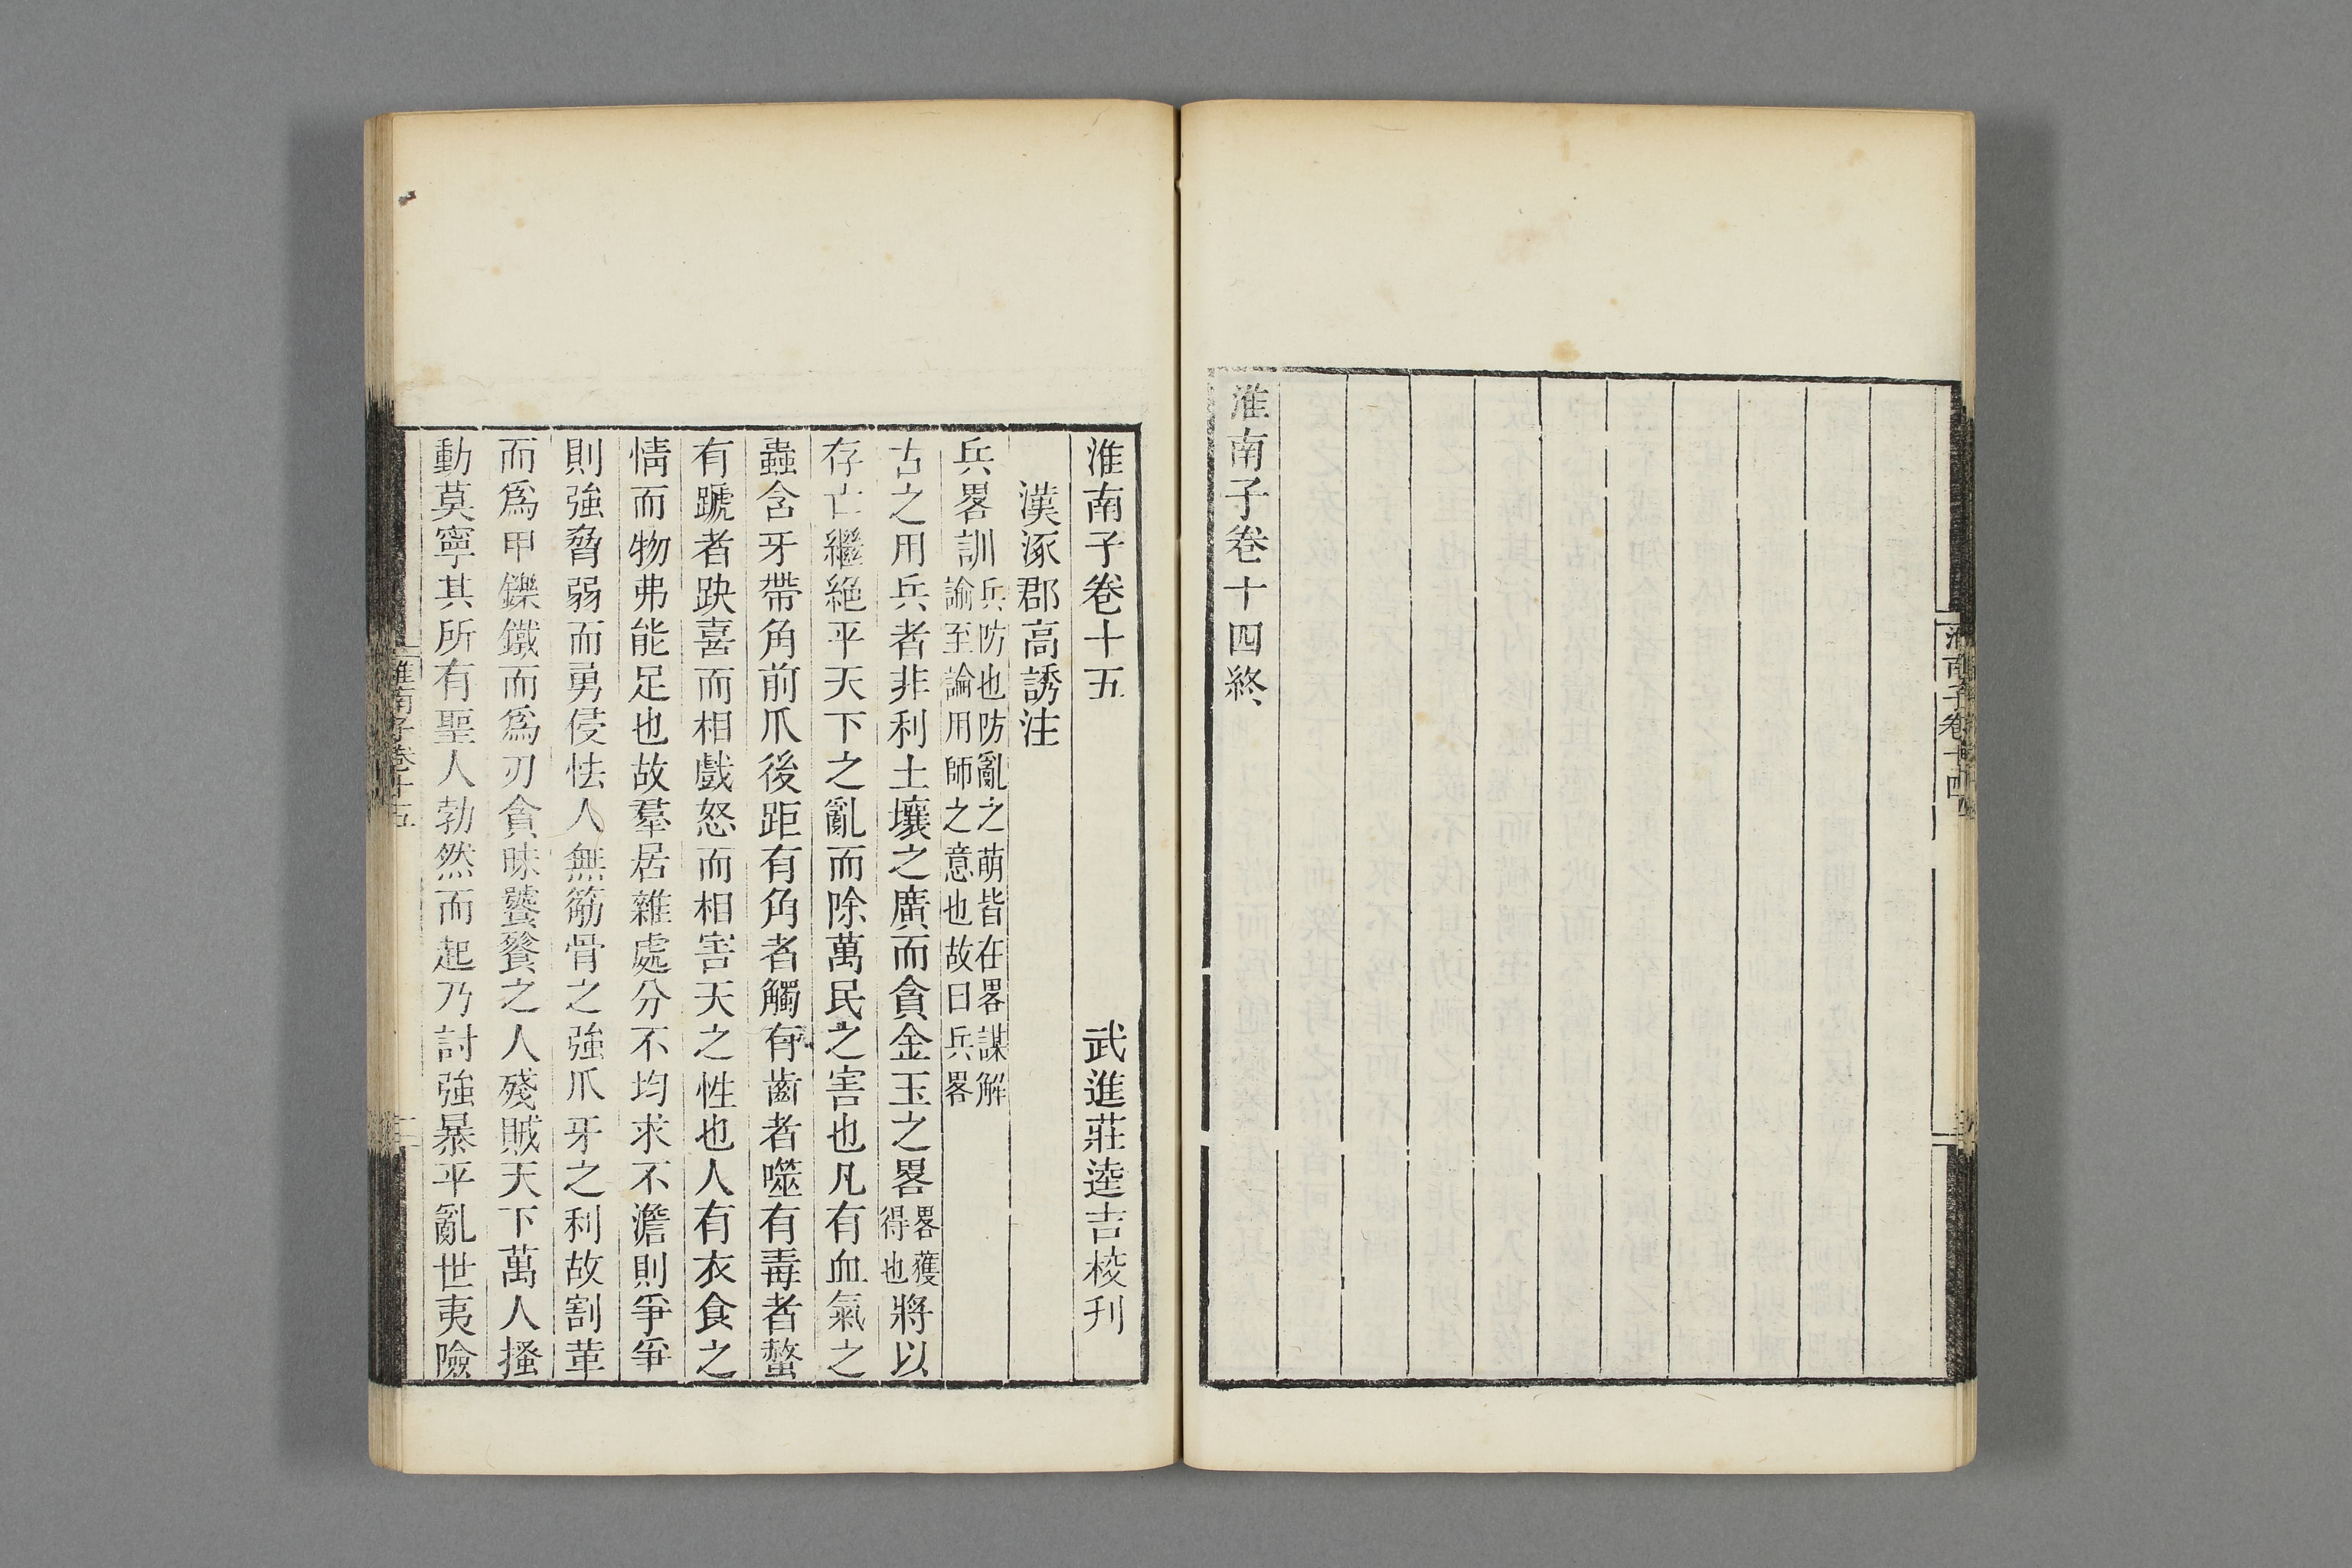 淮南子卷十四
淮南子卷十四終
淮南子卷十五 武進莊逵吉校刊
漢涿郡高誘注
兵畧訓兵防也防亂之萌皆在畧謀解諭至論用師之意也故曰兵畧
古之用兵者非利土壤之廣而貪金玉之畧畧獲得也將以
存亡繼絶平天下之亂而除萬民之害也凡有血氣之
蟲含牙帶角前爪後距有角者觸有齒者噬有毒者螫
有蹏者趹喜而相戲怒而相害天之性也人有衣食之
情而物弗能足也故羣居雜處分不均求不澹則爭爭
則強脅弱而勇侵怯人無筋骨之強爪牙之利故割革
而爲甲鑠鐵而爲刃貪昧饕餮之人殘賊天下萬人搔
動莫寧其所有聖人勃然而起乃討強暴平亂世夷險
淮南子卷十五